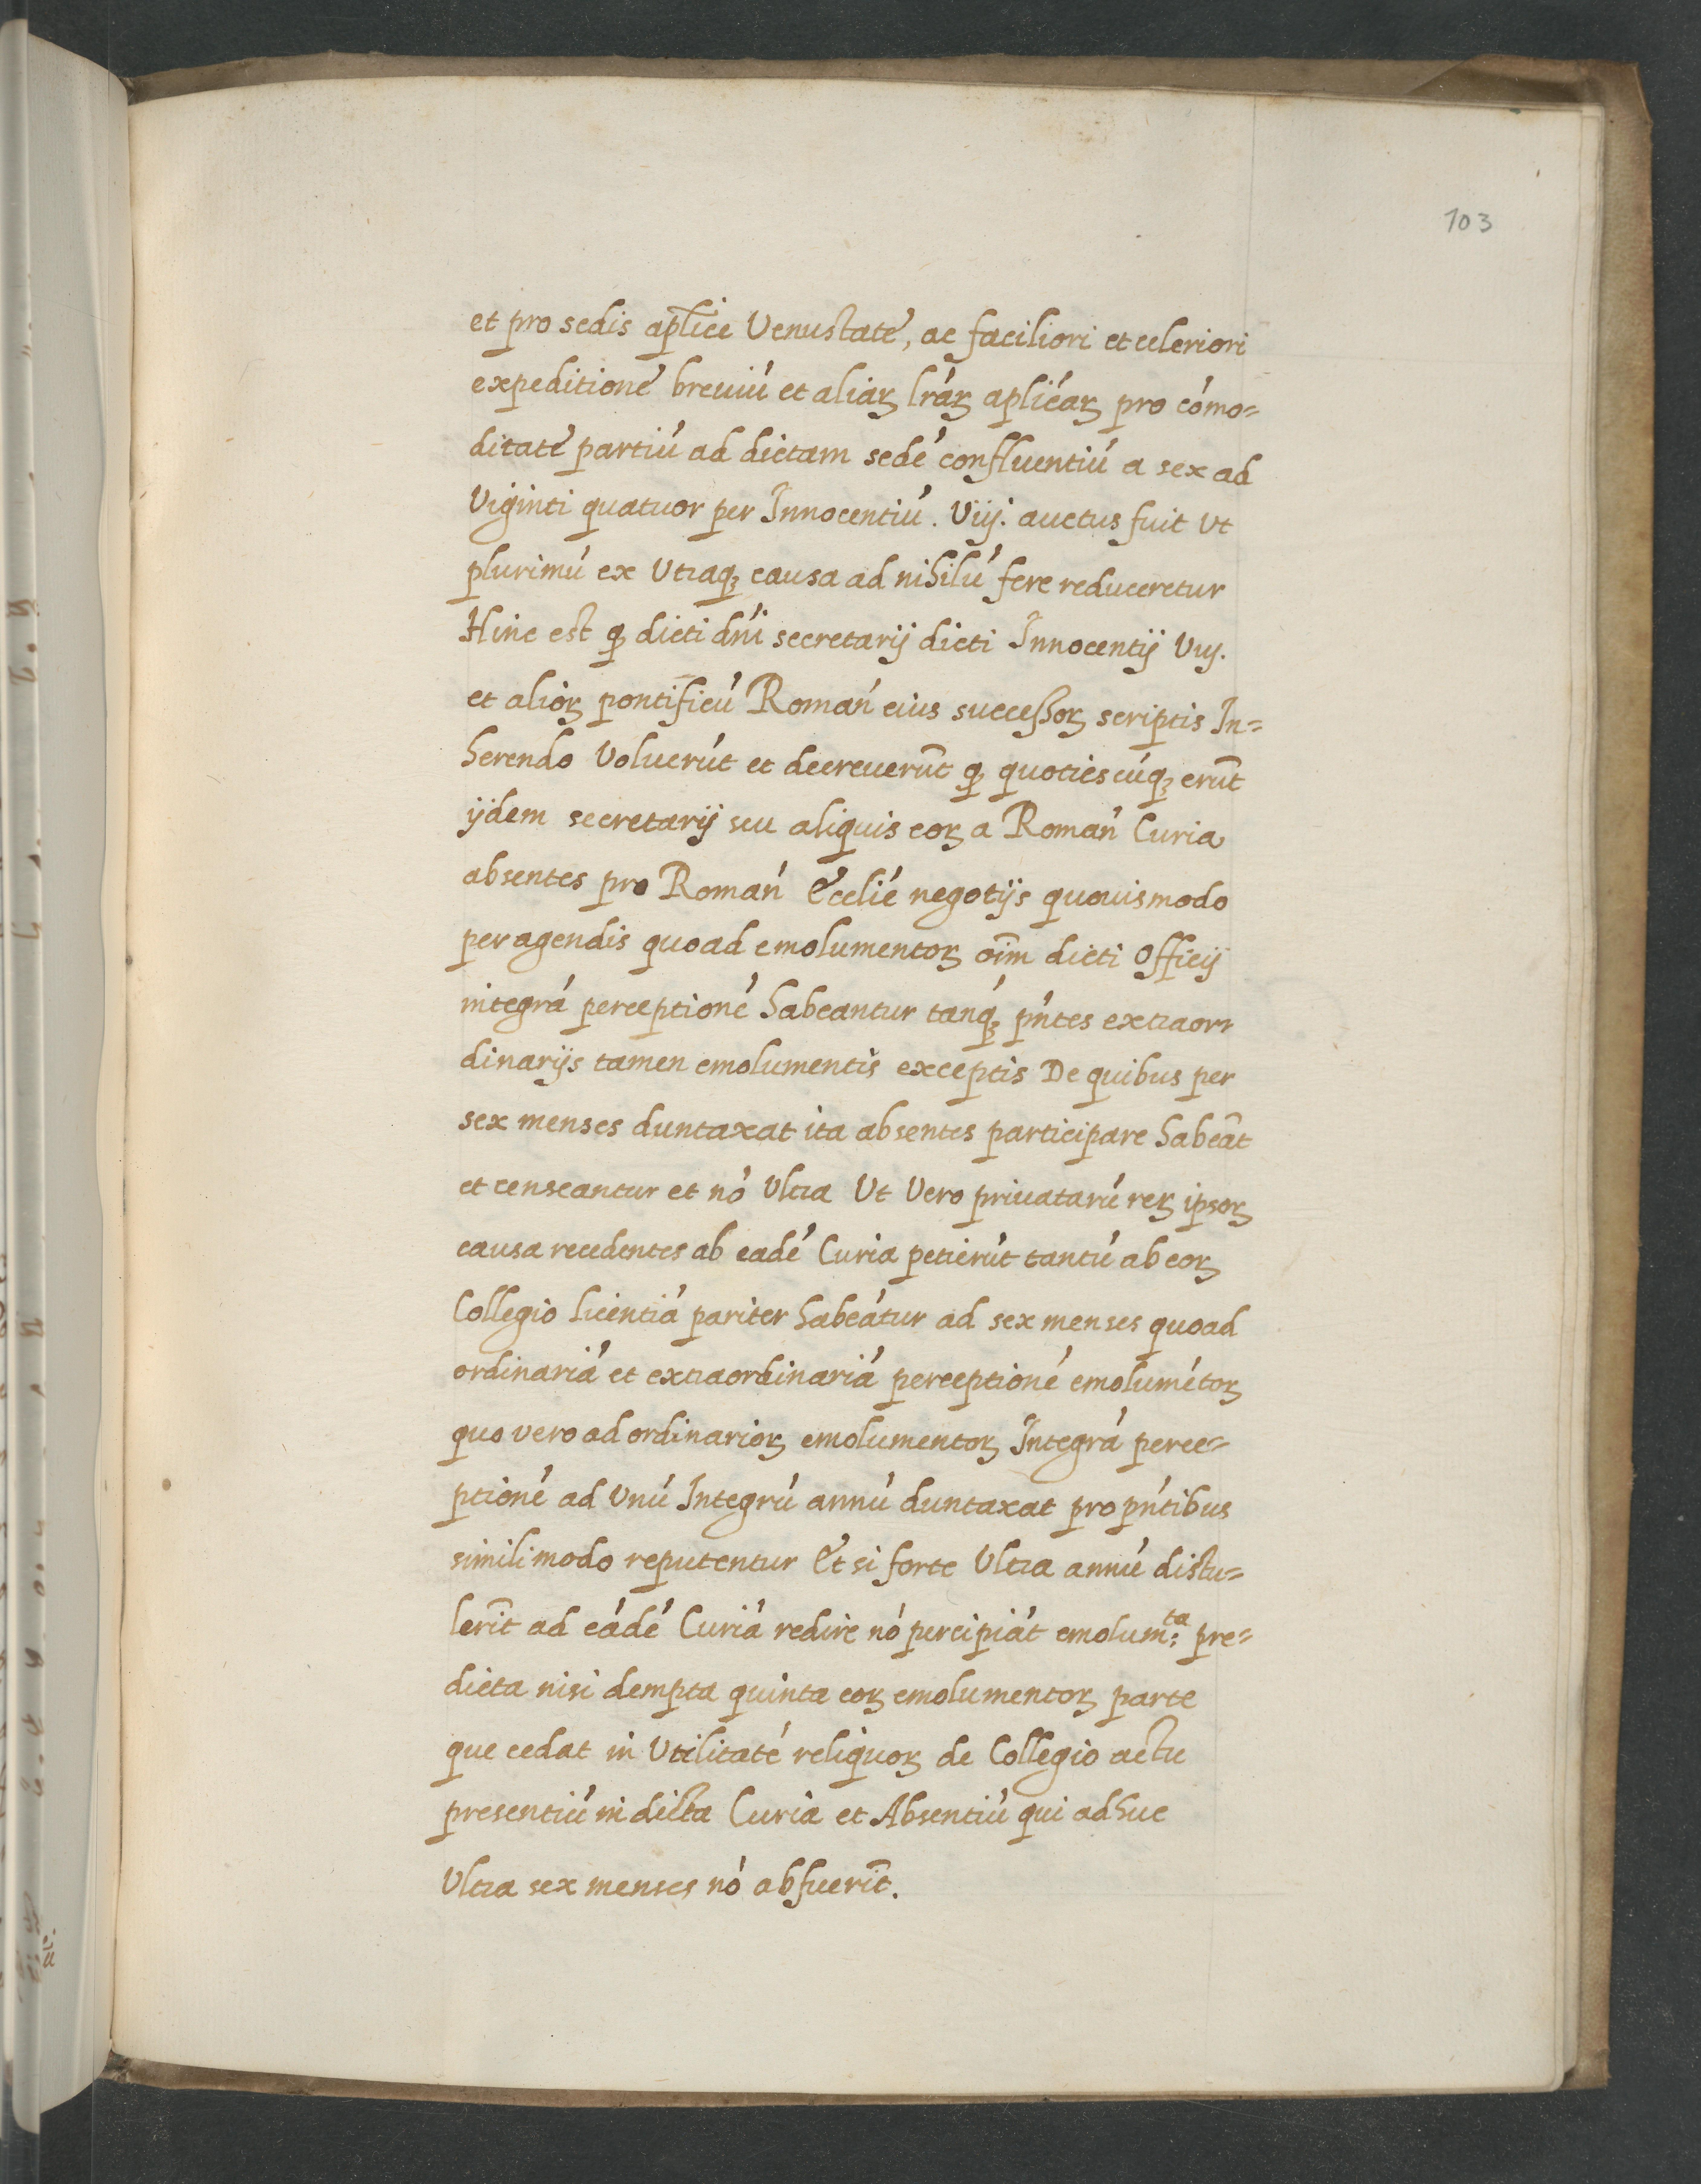 103
et pro sedis ap̄lice Venustate, ac faciliori et celeriori
expeditione breuiú et aliaꝝ lráꝝ apliéaꝝ pro cómo=
ditate partiú ad dictam sedé confluentiú a sex ad
Viginti quatuor per Innocentiú. Viij. auctus fuit Vt
plurimú ex Vtraqꝫ causa ad nihilú fere reduceretur
Hinc est ꝙ dicti dńi secretarij dicti Innocentij Viij.
et alioꝝ pontificú Romań eius successoꝝ scriptis In=
herendo Voluerút et decreuerūt ꝙ quotiescúqꝫ erūt
ijdem secretarij seu aliquis eoꝝ a Romań Curia
absentes pro Romań Ecclié negotijs quouismodo
peragendis quoad emolumentoꝝ oīm dicti Officij
integrá perceptioné habeantur tanqꝫ pńtes extraor=
dinarijs tamen emolumentis exceptis De quibus per
sex menses duntaxat ita absentes participare habeāt
et censeantur et nó Vltra Vt Vero priuatarú reꝝ ipsoꝝ
causa recedentes ab eadé Curia petierút tantú ab eoꝝ
Collegio licentiá pariter habeátur ad sex menses quoad
ordinariá et extraordinariá perceptioné emolumétoꝝ
quo vero ad ordinarioꝝ emolumentoꝝ Integrá perce=
ptioné ad Vnú Integrú annú duntaxat pro pńtibus
simili modo reputentur Et si forte Vltra annú distu=
lerīt ad eádé Curiá redire nó percipiát emolum:ta pre=
dicta nisi dempta quinta eoꝝ emolumentoꝝ parte
que cedat in Vtilitaté reliquoꝝ de Collegio actu
presentiú in dicta Curia et Absentiú qui adhuc
Vltra sex menses nó abfuerīt.